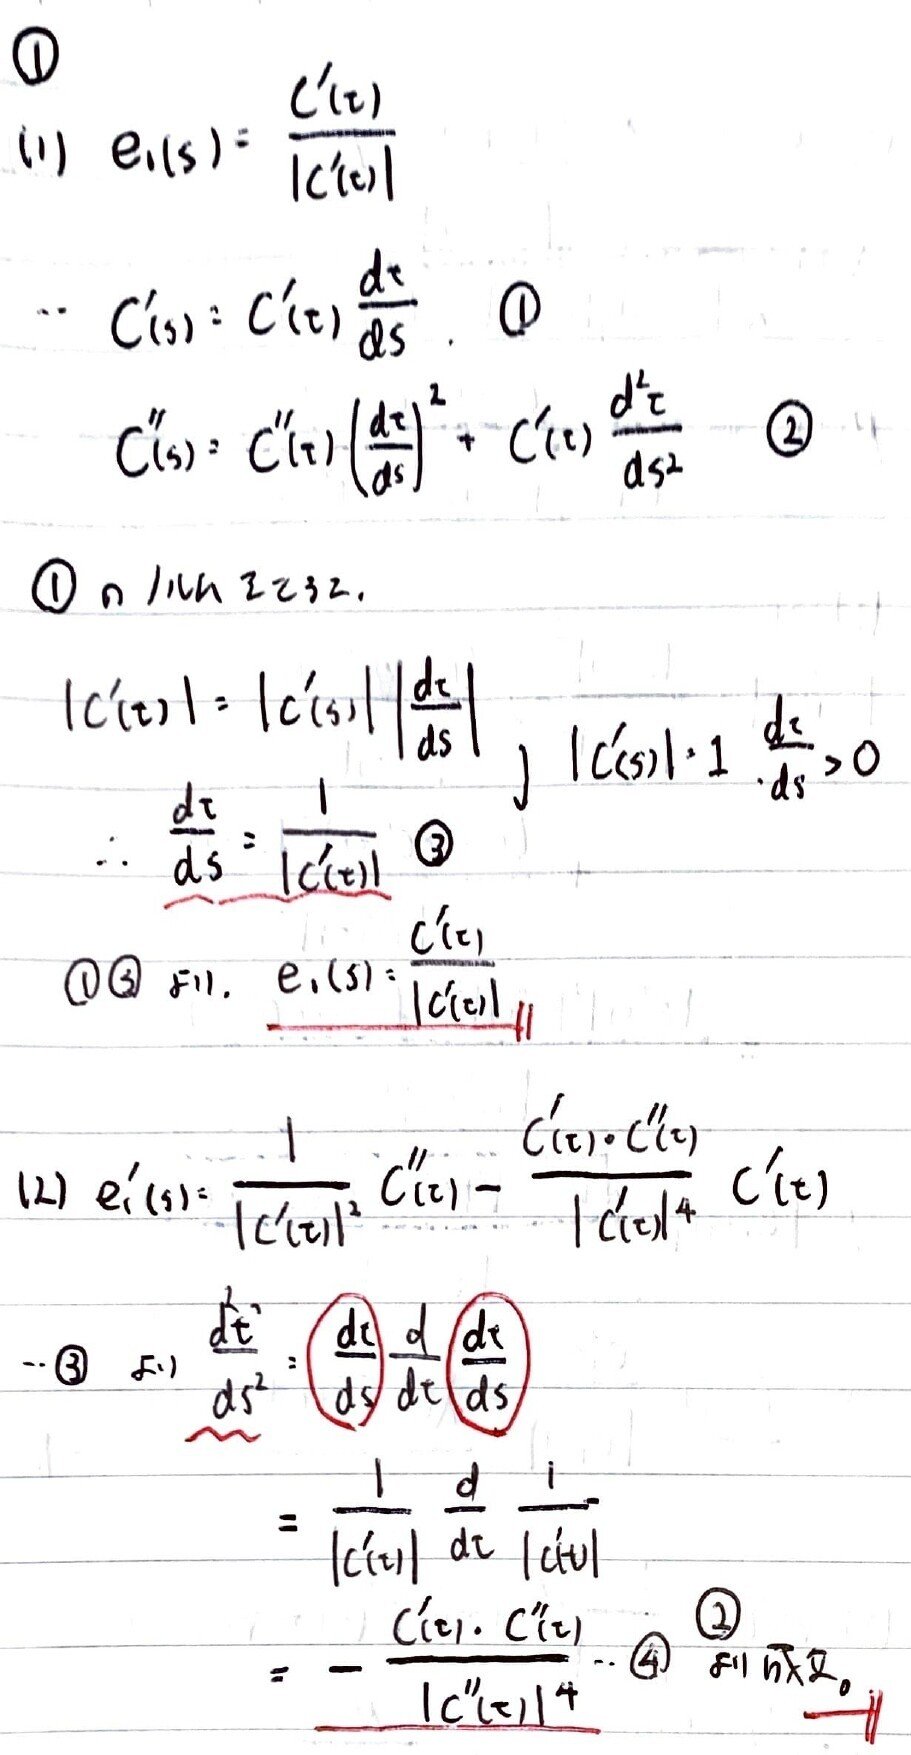 ①
(1) e₁(s) = C'(τ) / |C'(τ)|
∵ C'(s) = C'(τ) dτ/ds . ①
C''(s) = C''(τ) (dτ/ds)² + C'(τ) d²τ/ds² ②
① の ノルムをとると.
|C'(τ)| = |C'(s)| |dτ/ds| , |C'(s)| = 1 dτ/ds > 0
∴ dτ/ds = 1 / |C'(τ)| ③
①③ より. e₁(s) = C'(τ) / |C'(τ)|
(2) e₁'(s) = 1/|C'(τ)|² C''(τ) − C'(τ)・C''(τ) / |C'(τ)|⁴ C'(τ)
∵ ③ より d²τ/ds² = dτ/ds d/dτ dτ/ds
= 1/|C'(τ)| d/dτ 1/|C'(τ)|
= − C'(τ)・C''(τ) / |C''(τ)|⁴ … ④ ② より成立。